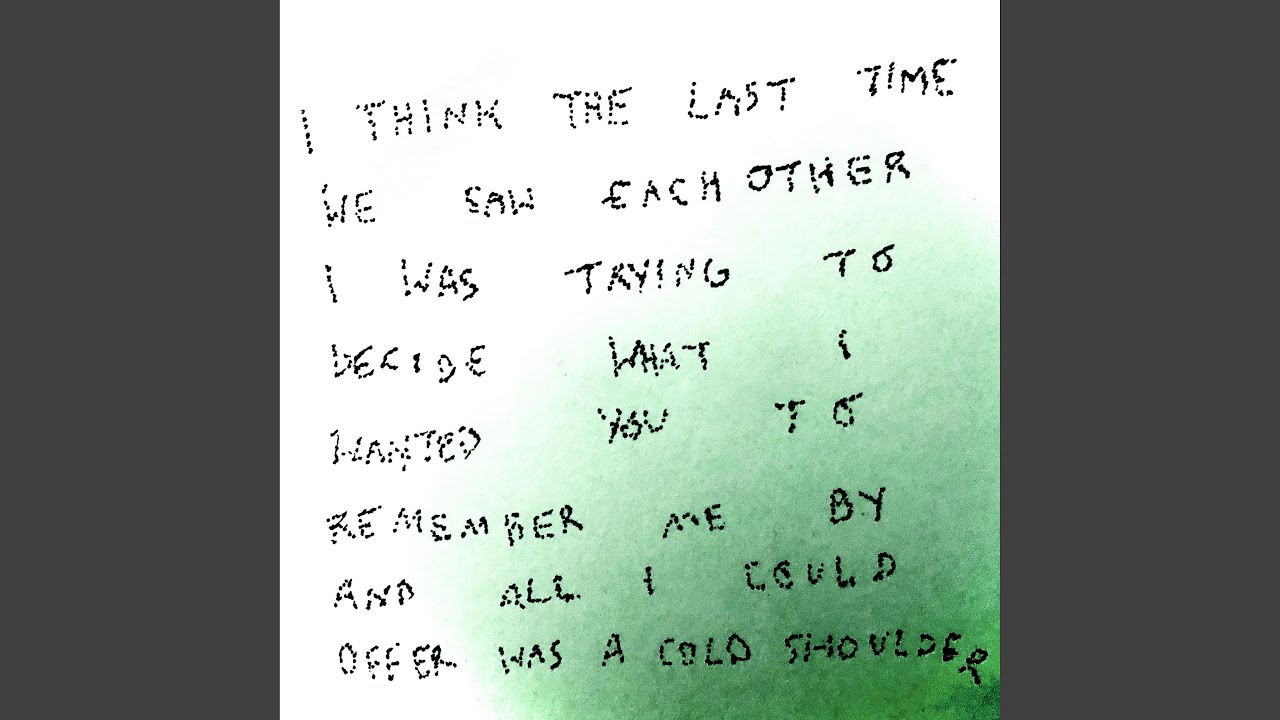 I THINK THE LAST TIME
WE SAW EACH OTHER
I WAS TRYING TO
DECIDE WHAT I
WANTED YOU TO
REMEMBER ME BY
AND ALL I COULD
OFFER WAS A COLD SHOULDER